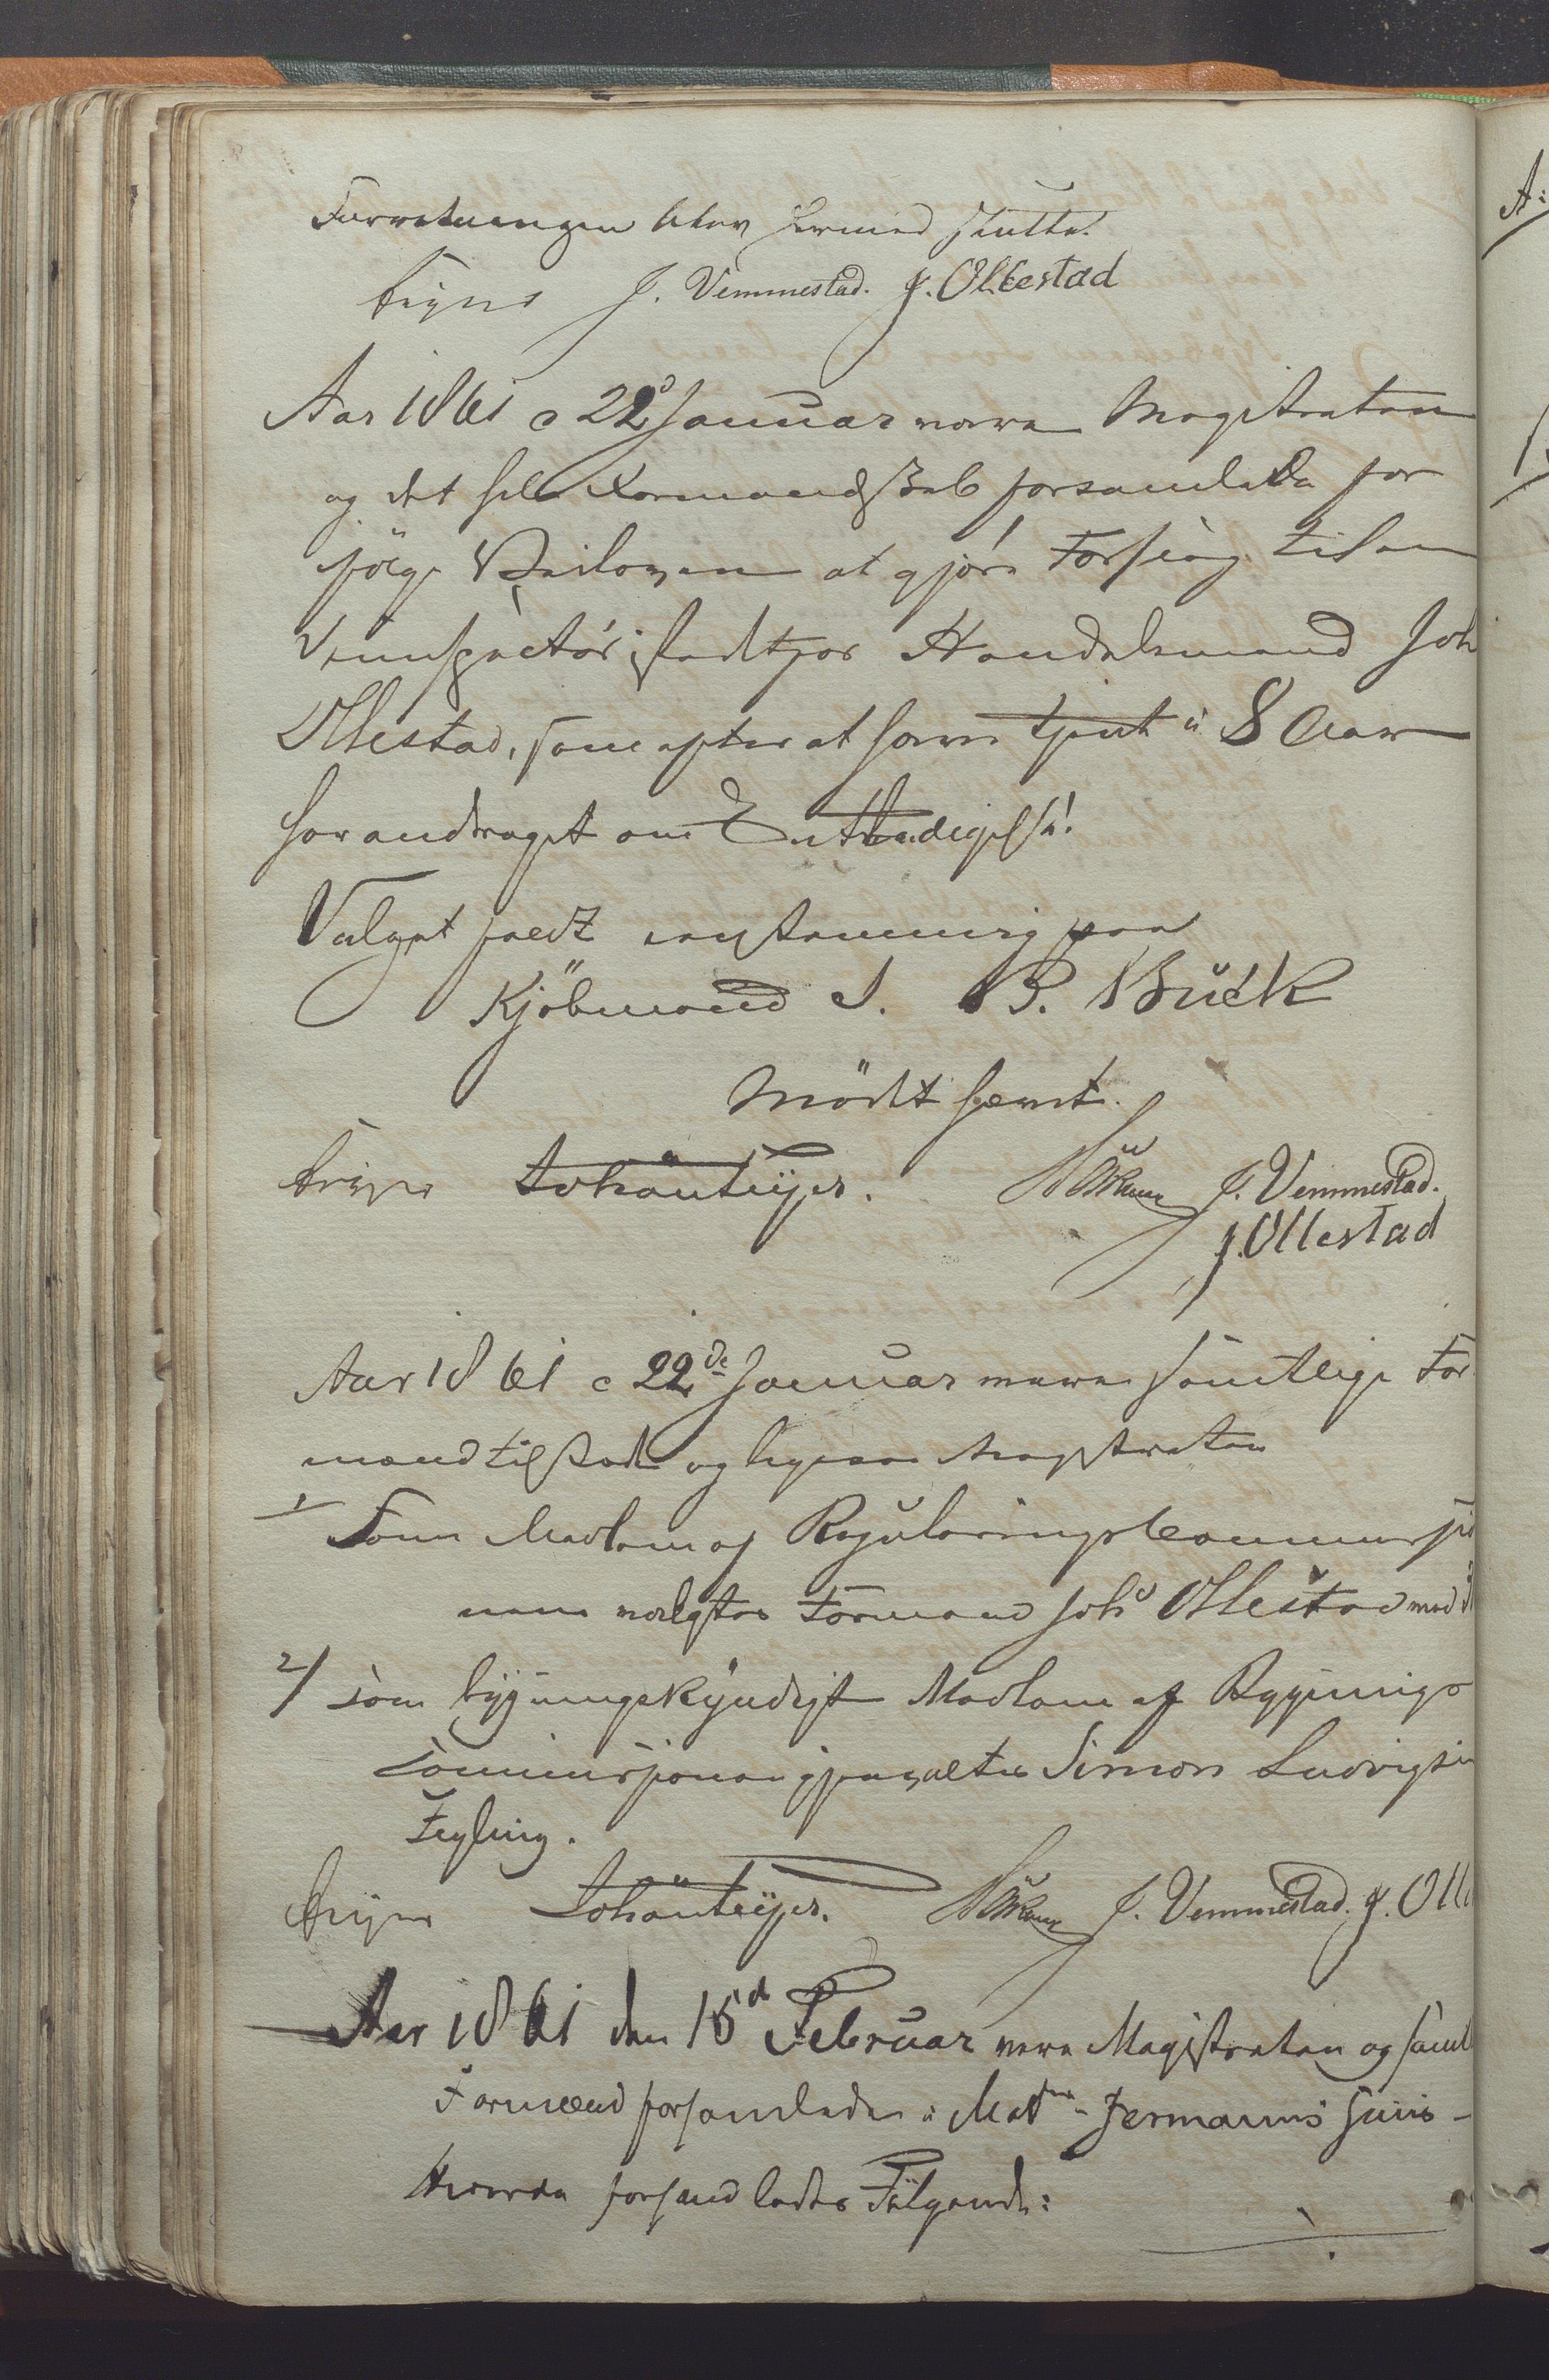 Forretningen blev hermed sluttet.
J. Vemmestad. J. Ollestad
Aar 1861 d 22d Januar vare Magistraten
og det hele Formandskab forsamlede for
ifölge Veiloven at gjöre Forslag til en
Veinspectör istedetfor Handelsmand Joh
Ollestad, som efter at have tjent i 8 Aar
har andraget om Entledigelse.
Valget faldt enstemmig paa
Kjöbmand S. B. Buck
Mödet hævet.
J. Vemmestad.
J. Ollestad
Aar 1861 d 22de Januar vare samtlige For
mænd tilstede og ligesaa Magistraten
1/ Som Medlem af Reguleringscommissio
nen valgtes Formand Johs Ollestad
2/ som bygningskyndigt Medlem af Bygnings
commissionen gjenvalgtes Simon Ludvigsen
Tegling.
J. Vemmestad. J. Olle
Aar 1861 den 15d Februar vare Magistraten og samt
Formænd forsamlede i Mad Jermanns Huus
Hvorda forhandledes Fölgende: